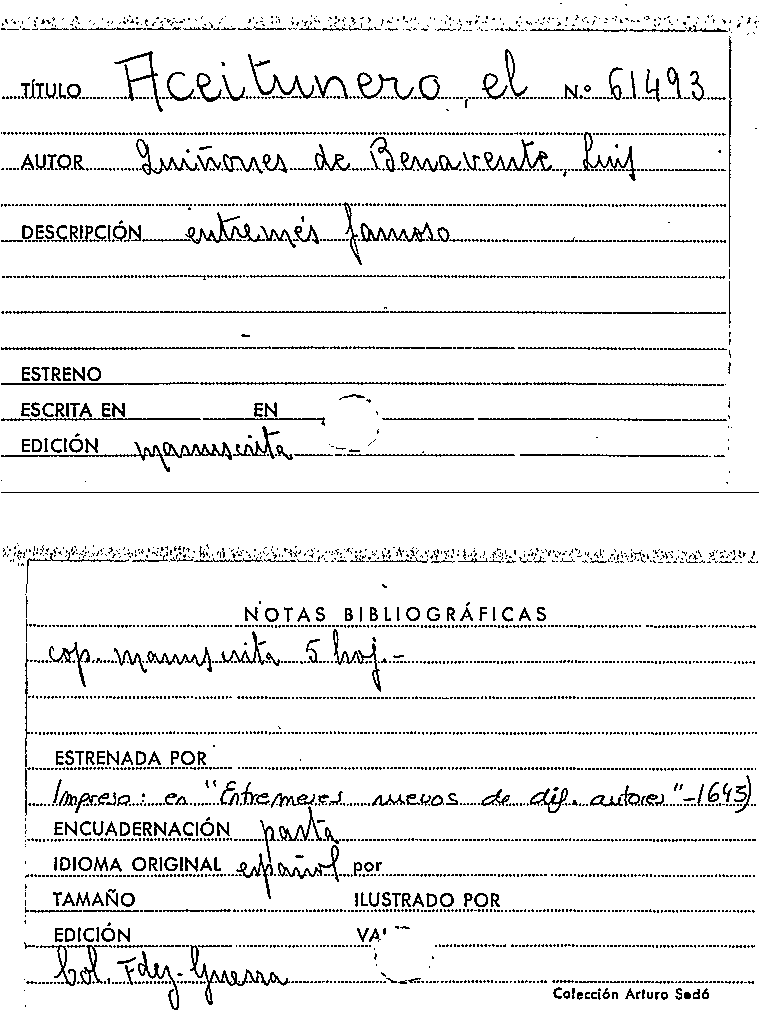 TÍTULO Aceitunero, el N.º 61493
AUTOR Quiñones de Benavente, Luis
DESCRIPCIÓN entremés famoso
ESTRENO
ESCRITA EN EN
EDICIÓN manuscrita
NOTAS BIBLIOGRÁFICAS
cop. manuscrita 5 hoj.-
ESTRENADA POR
Impreso: en "Entremeses nuevos de dif. autores"-1643)
ENCUADERNACIÓN pasta
IDIOMA ORIGINAL español por
TAMAÑO ILUSTRADO POR
EDICIÓN
Col. Fdez-Guerra
Colección Arturo Sedó